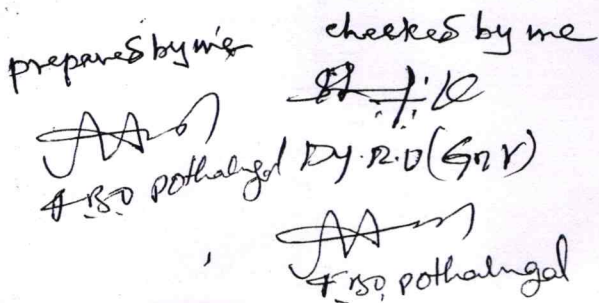 prepared by me
checked by me
FBO pothalugal
Dy.R.O (Gnr)
FBO, pothalugal